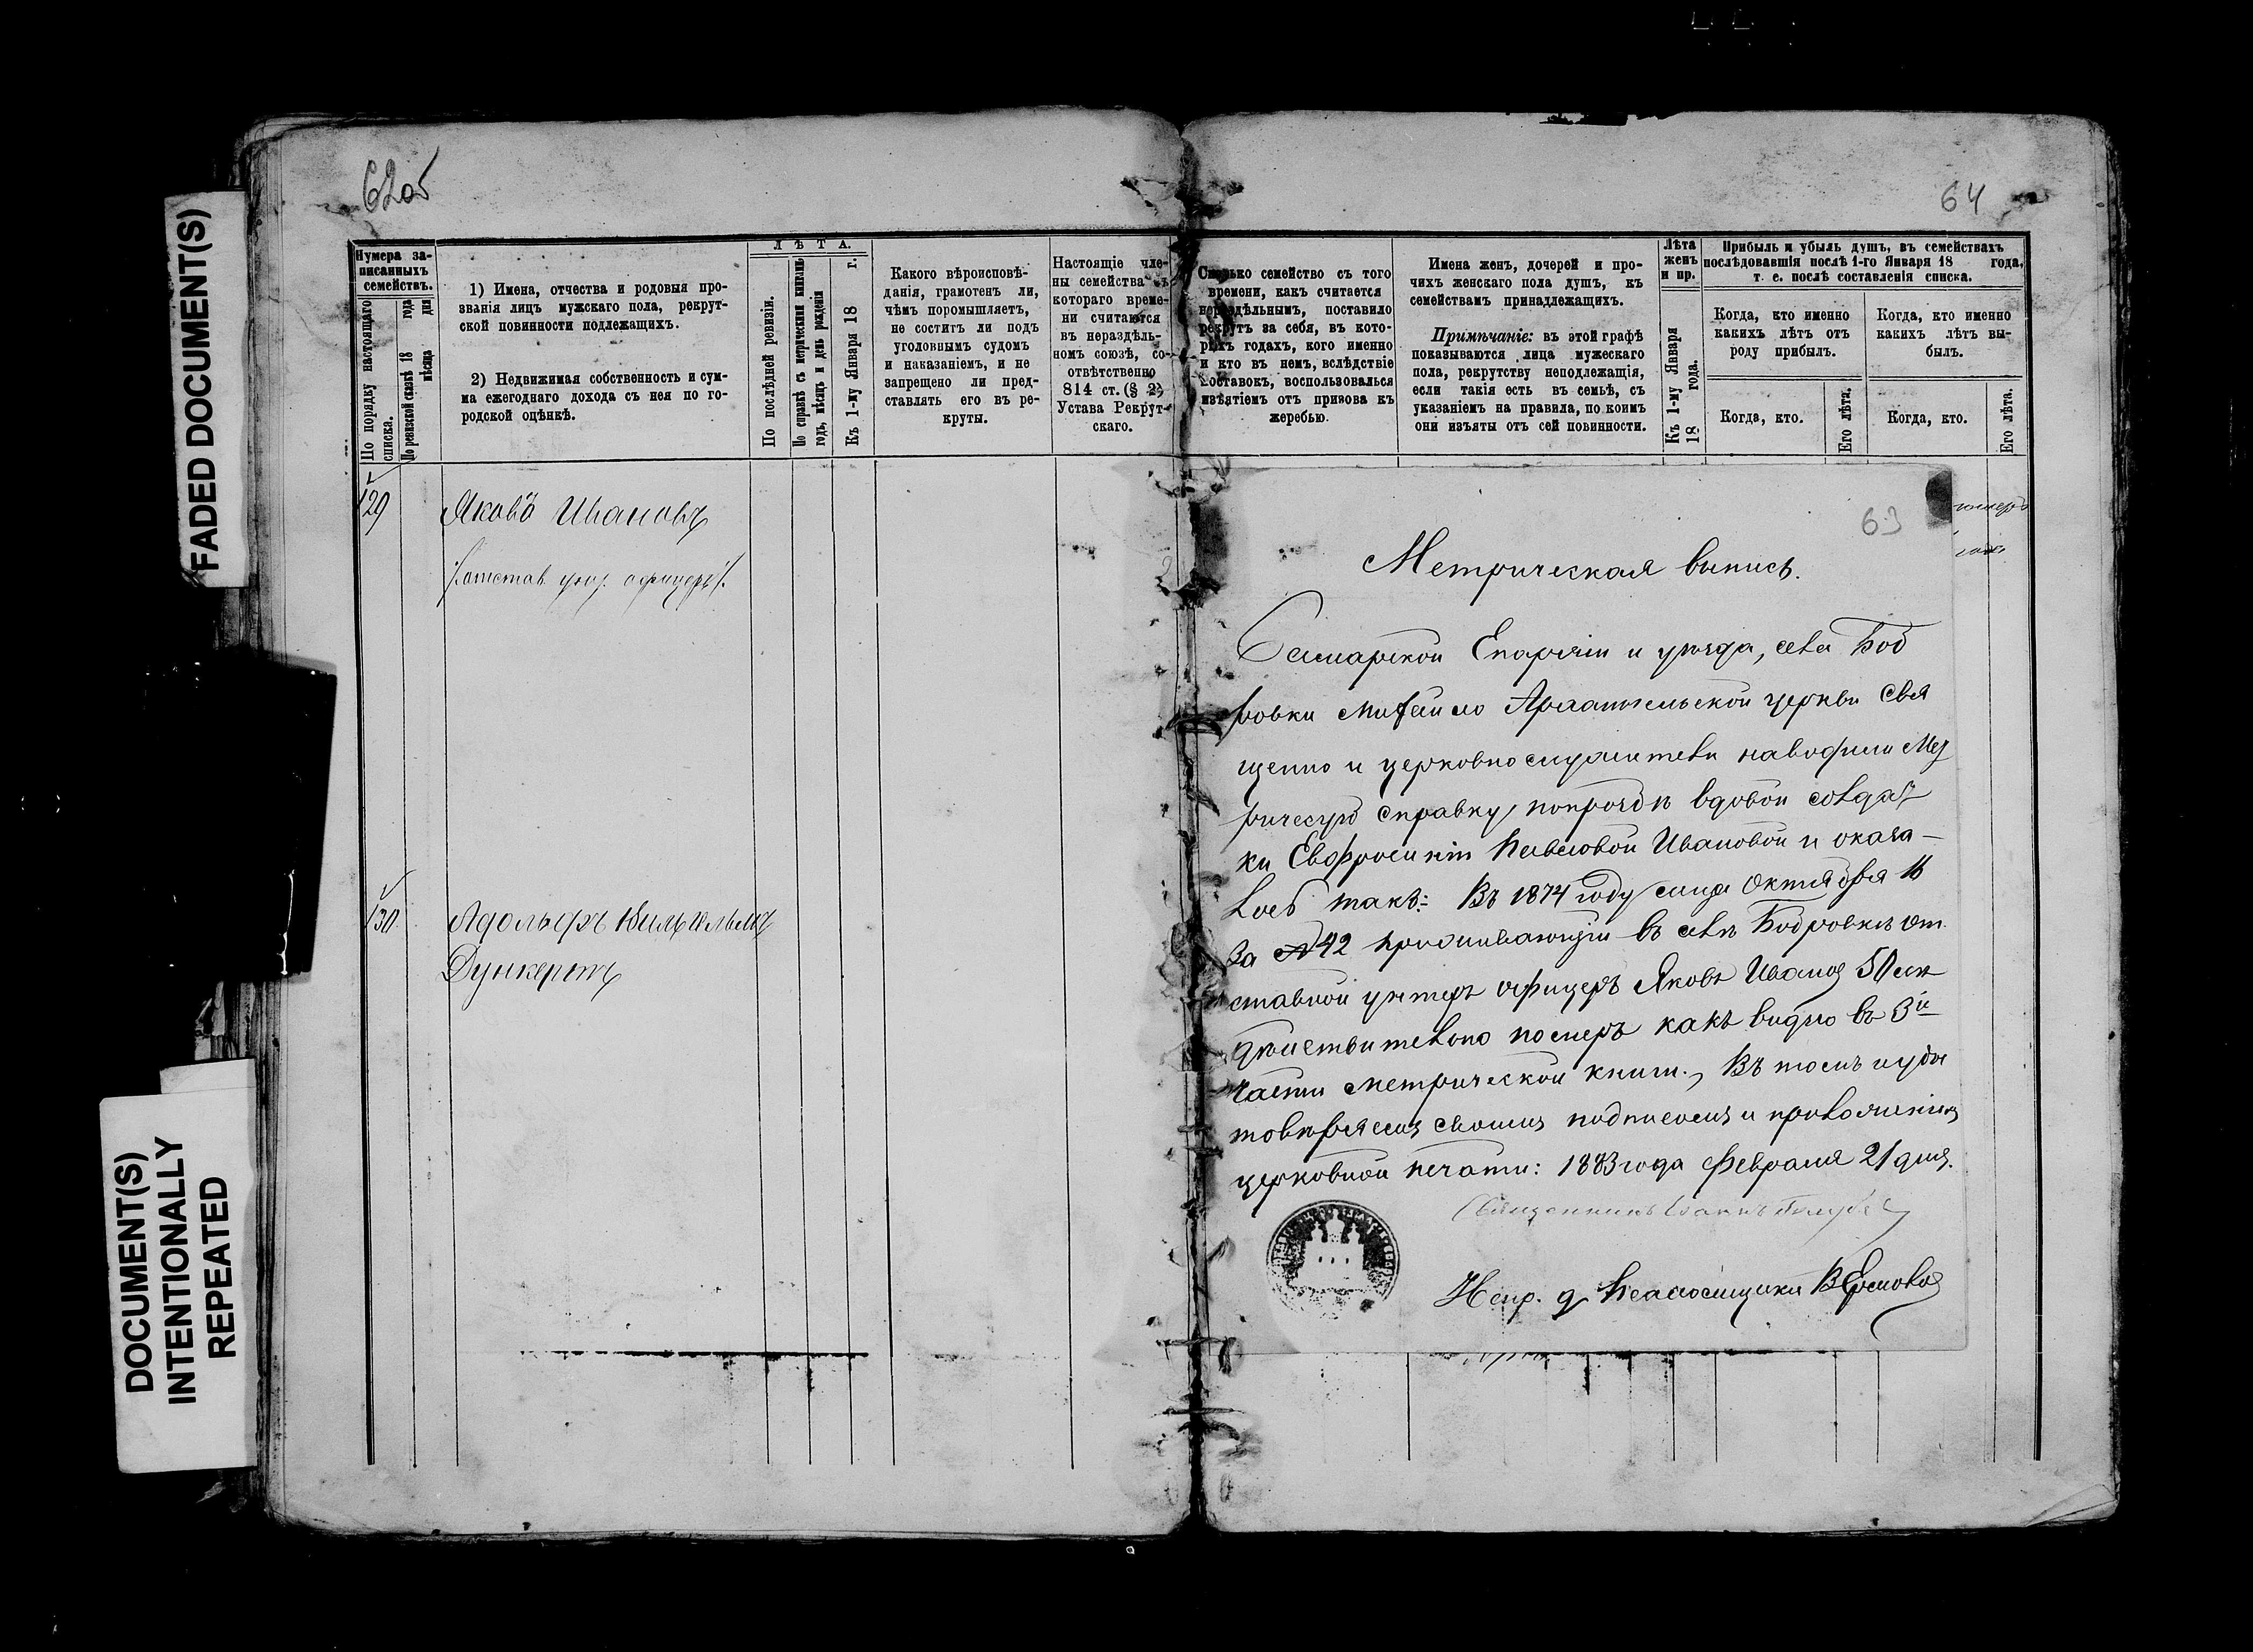 FADED DOCUMENT(S)
DOCUMENT(S)
INTENTIONALLY
REPEATED
62об
64
Нумера за-
писанныхъ
семействъ.
По порядку настоящаго
списка.
По ревизской сказкѣ 18 года
мѣсяца дня
1) Имена, отчества и родовыя про-
званія лицъ мужскаго пола, рекрут-
ской повинности подлежащихъ.
2) Недвижимая собственность и сум-
ма ежегоднаго дохода съ нея по го-
родской оцѣнкѣ.
ЛѢТА.
По послѣдней ревизіи.
По справкѣ съ метрическими книгами
годъ, мѣсяцъ и день рожденія
Къ 1-му Января 18 г.
Какого вѣроисповѣ-
данія, грамотенъ ли,
чѣмъ поромышляетъ,
не соститъ ли подъ
уголовнымъ судомъ
и наказаніемъ, и не
запрещено ли пред-
ставлять его въ ре-
круты.
Настоящіе чле-
ны семейства съ
котораго време-
ни считаются
въ нераздѣль-
номъ союзѣ, со-
отвѣтственно
814 ст. (§ 2)
Устава Рекрут-
скаго.
Сколько семейство съ того
времени, какъ считается
нераздѣльнымъ, поставило
рекрутъ за себя, въ кото-
рыхъ годахъ, кого именно
и кто въ немъ, вслѣдствіе
составокъ, воспользовался
изъятіемъ отъ призова къ
жеребью.
Имена женъ, дочерей и про-
чихъ женскаго пола душъ, къ
семействамъ принадлежащихъ.
Примѣчаніе: въ этой графѣ
показываются лица мужескаго
пола, рекрутству неподлежащія,
если такія есть въ семьѣ, съ
указаніемъ на правила, по коимъ
они изъяты отъ сей повинности.
Лѣта
женъ
и пр.
Къ 1-му Января
18 года.
Прибыль и убыль душъ, въ семействахъ
послѣдовавшія послѣ 1-го Января 18 года,
т. е. послѣ составленія списка.
Когда, кто именно
какихъ лѣтъ отъ
роду прибылъ.
Когда, кто именно
какихъ лѣтъ вы-
былъ.
Когда, кто.
Его лѣта.
Когда, кто.
Его лѣта.
129
Яковъ Ивановъ
/отстав. унт. офицеръ/.
130.
Адольфъ Вильгельмъ
Дункертъ
63
Метрическая выпись.
Самарской Епархіи и уѣзда, села Боб
ровки Михаило Архангельской церкви Свя
щенно и церковнослужители наводили Мет
рическую справку по прозбѣ вдовой солдат
ки Евфросиніи Павловой Ивановой и оказа-
лось такъ: Въ 1874 году Октября 16
За № 42 проживающій въ селѣ Бобровкѣ от
ставной унтеръ офицеръ Яковъ Ивановъ 50 лѣт
дѣйствительно померъ какъ видно въ 3й
части метрической книги., Въ томъ и удос
товѣряемъ своимъ подписомъ и приложеніемъ
церковной печати: 1883 года Февраля 21 дня.
Священникъ Іоаннъ
Испр. д. Псаломщика В Ермоловъ